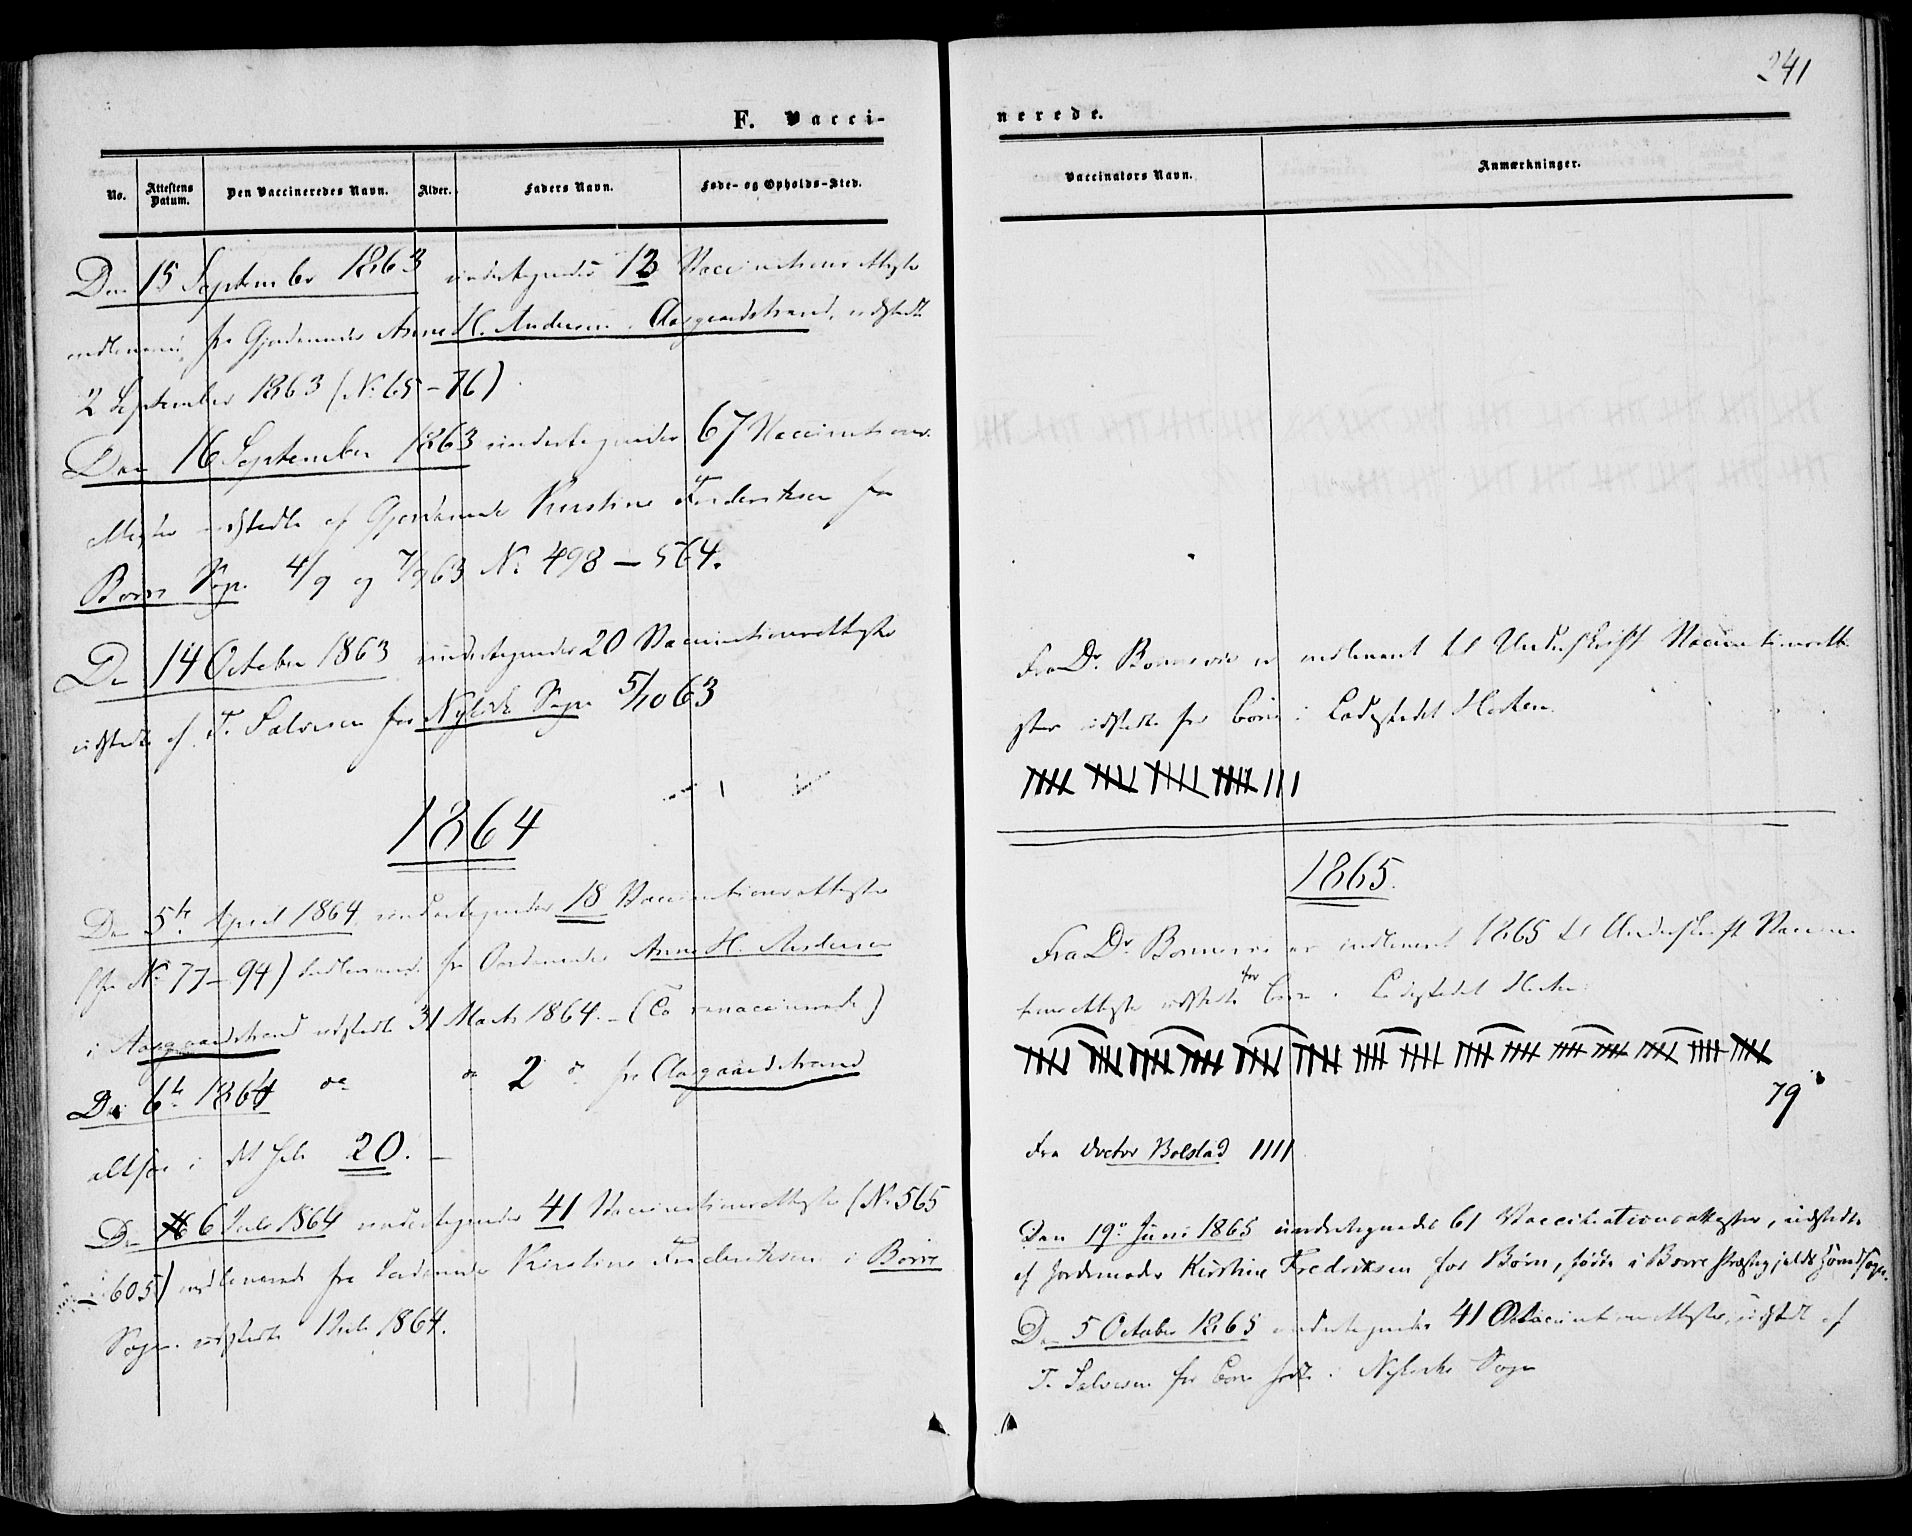 241
F. Vacci-
nerede.
No.
Attestens Datum.
Den Vaccineredes Navn.
Alder.
Faders Navn.
Føde- og Opholds-Sted.
Vaccinators Navn.
Anmærkninger.
Den 15 September 1863 undertegnedes 12 Vaccinationsattester
indleverede fra Gjordemoder Anne H. Andersen, Aasgaardstrand, udstedte
2 September 1863 (No 65 - 76)
Den 16 September 1863 undertegnedes 67 Vaccinations-
attester udstedte af Gjordemoder Kirstine Frederiksen for
Borre Sogn 4/9 og 7/9 63 No 498 - 564.
Den 14 October 1863 undertegnedes 20 Vaccinationsattester
udstedte af T. Salvesen for Nykirke Sogn 5/10 63
1864
Den 5te April 1864 undertegnedes 18 Vaccinationsattester
(fra No 77 - 94) indleverede fra Jordemoder Anne H. Andersen
i Aasgaardstrand udstedte 31 Marts 1864. - (To revaccinerede)
Den 6te 1864 do do 2 do fra Aasgaardstrand
altsaa i det hele 20. -
Den 6 Juli 1864 undertegnedes 41 Vaccinationsattester (No 565
- 605) indleverede fra Jordemoder Kirstine Frederiksen i Borre
Sogn udstedte 1 Juli 1864.
Fra Dr. Bonnevie er indleveret til Underskrift Vaccinationsatte-
ster udstedte for Børn i Ladestedet Horten
1865.
Fra Dr. Bonnevie er indleveret 1865 til Underskrift Vaccina-
tionsattester udstedte for Børn i Ladestedet Horten:
79
Fra Doctor Bolstad IIII
Den 19de Juni 1865 undertegnedes 61 Vaccinationsattester, udstedte
af Jordemoder Kirstine Fredriksen for Børn, fødte i Borre Præstegjelds Hovedsogn.
Den 5 October 1865 undertegnedes 41 Vaccinationsattester, udstedt af
T. Salvesen for Børn fødte i Nykirke Sogn